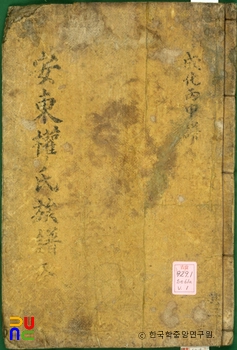 成化丙申譜
安東權氏族譜
929.1
ⓒ 한국학중앙연구원